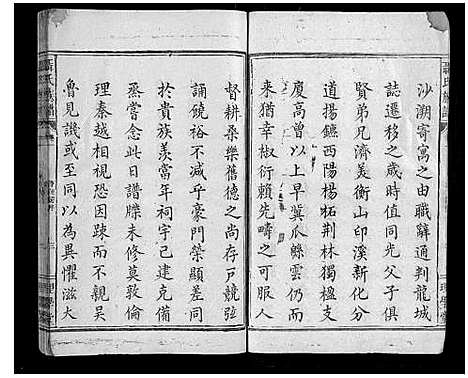 沙潮寄寓之由職辭通判龍城
誌遷移之歲時值同光父子俱
賢弟兄濟美衡山印溪新化分
道揚鑣西陽楊柘荆林獨楹支
廈高曾以上早冀瓜緜雲仍而
來猶幸椒衍賴先疇之可服人
督耕桑樂舊德之尚存戸競弦
誦饒裕不減乎豪門榮顯差同
於貴族羨當年祠宇已建克備
烝嘗念此日譜牒未修莫敦倫
理秦越相視恐因踈而不親吴
魯見譏或至同以為異懼滋大